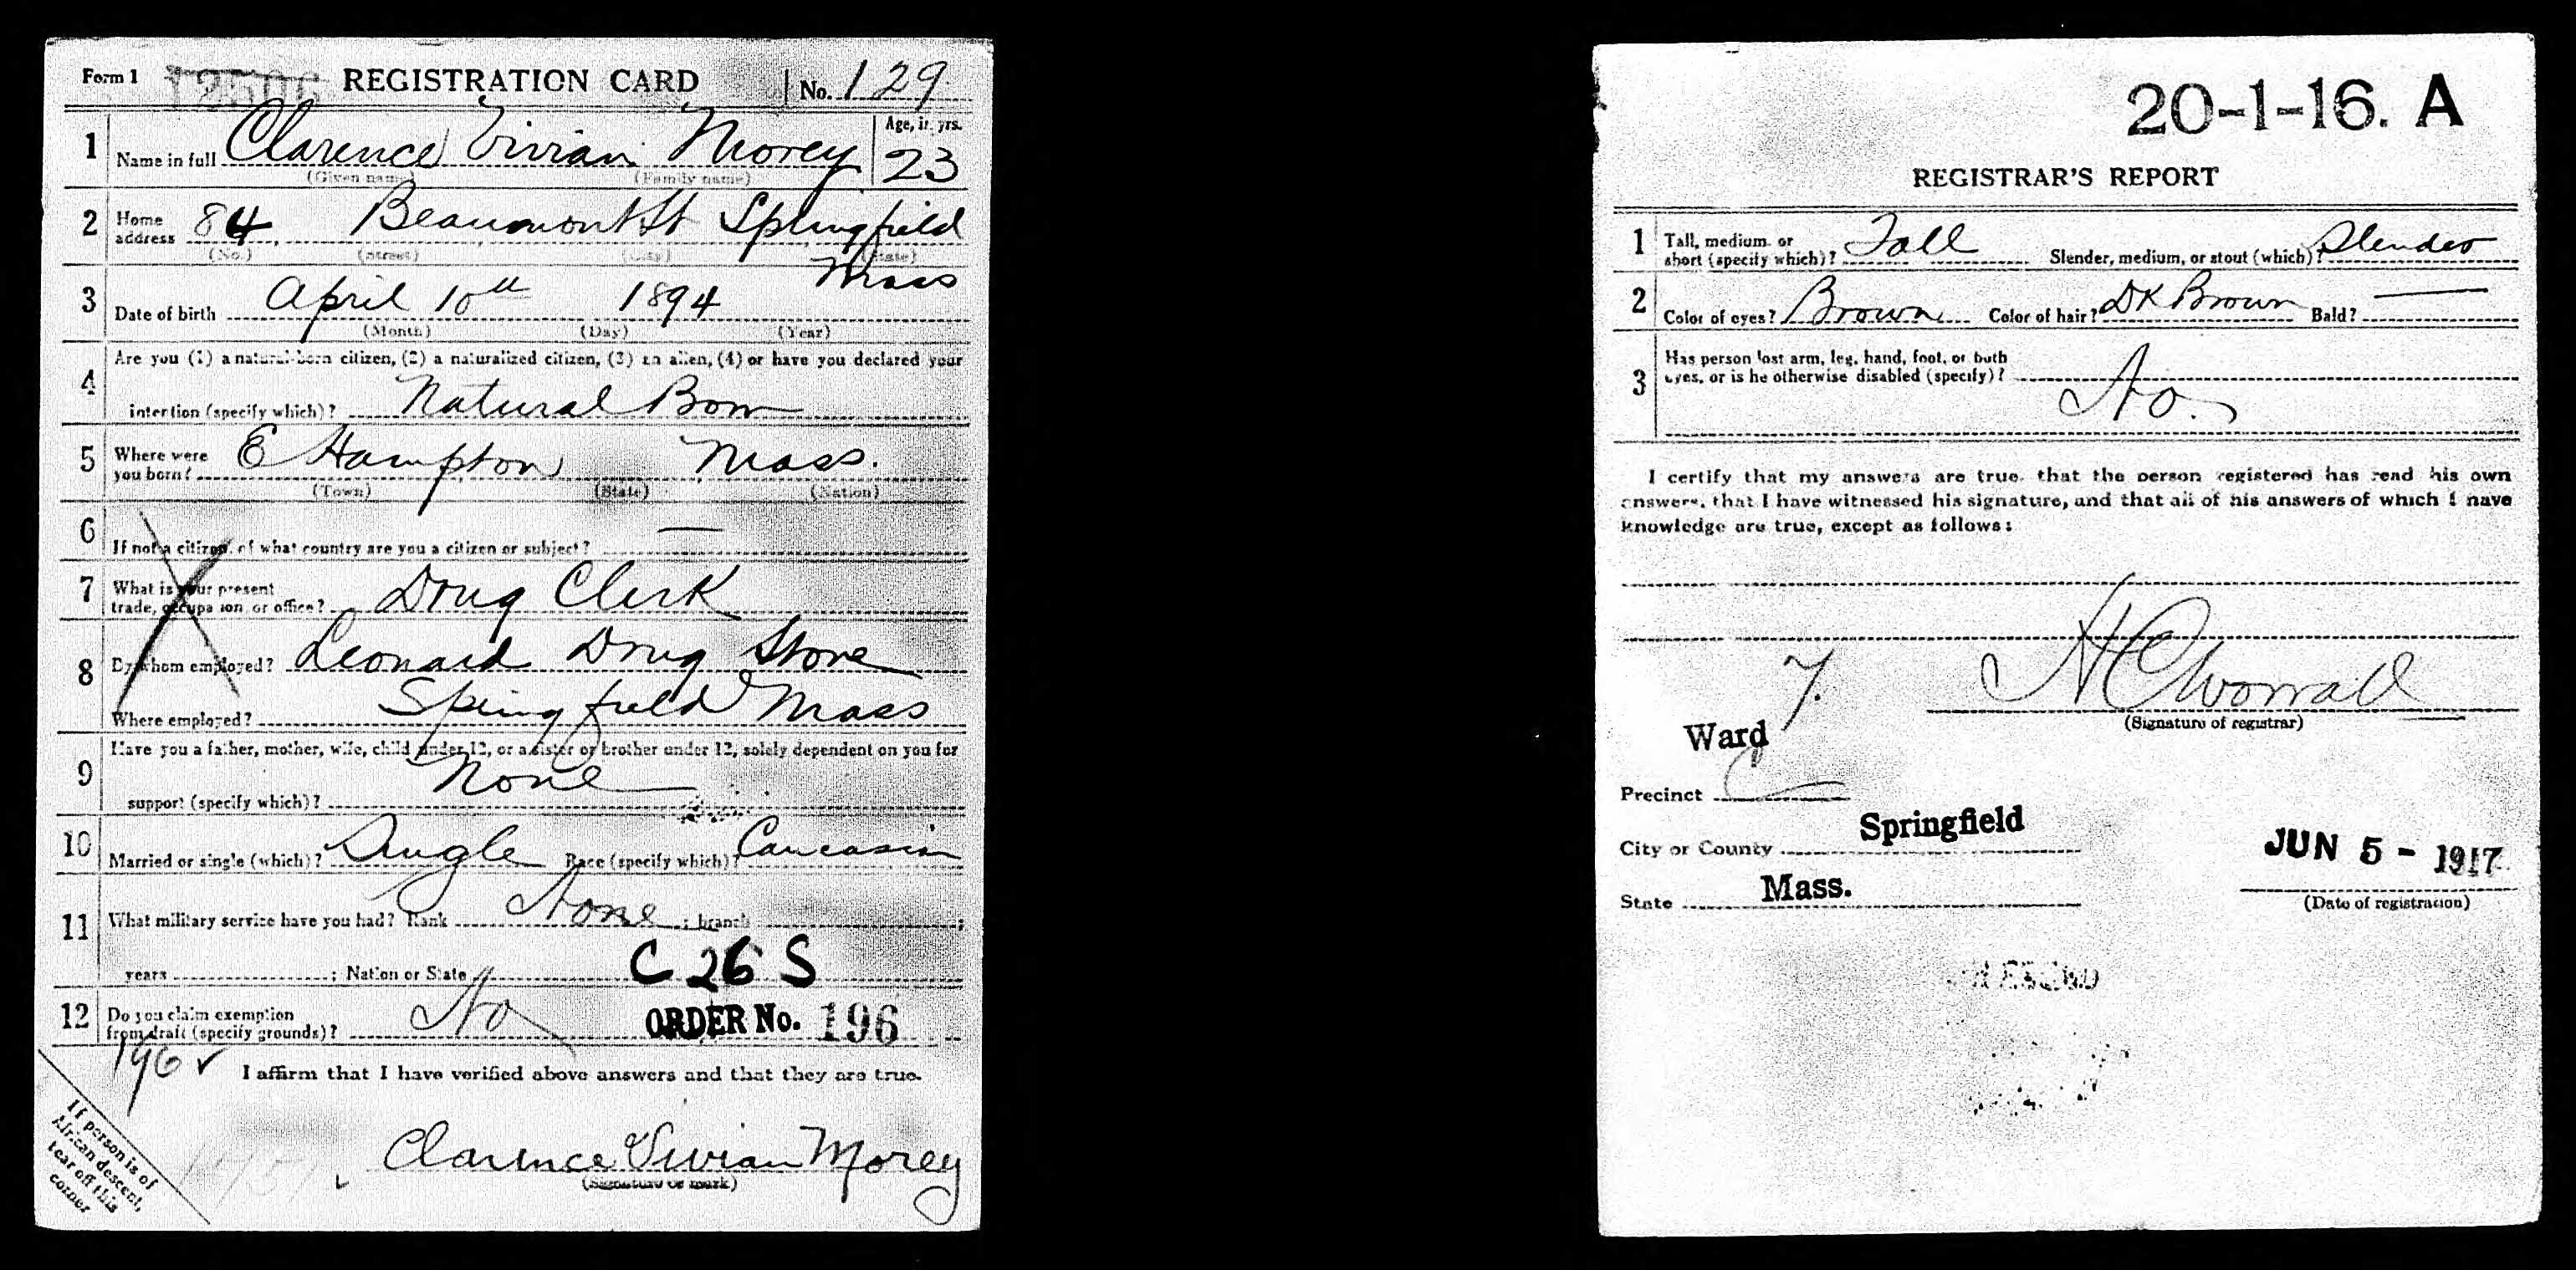 Form 1 REGISTRATION CARD No. 129
1 Name in full Clarence Vivian Morey Age, in yrs. 23
(Given name) (Family name)
2 Home address 84 Beaumont St Springfield
(No.) (Street) (City) (State)
Mass
3 Date of birth April 10th 1894
(Month) (Day) (Year)
4 Are you (1) a natural-born citizen, (2) a naturalized citizen, (3) an alien, (4) or have you declared your
intention (specify which)? Natural Born
5 Where were you born? E Hampton Mass.
(Town) (State) (Nation)
6 If not a citizen, of what country are you a citizen or subject? —
7 What is your present trade, occupation, or office? Drug Clerk
8 By whom employed? Leonard Drug Store
Where employed? Springfield Mass
9 Have you a father, mother, wife, child under 12, or a sister or brother under 12, solely dependent on you for
support (specify which)? None
10 Married or single (which)? Single Race (specify which)? Caucasian
11 What military service have you had? Rank None ; branch ;
years ; Nation or State C 26 S
12 Do you claim exemption from draft (specify grounds)? No ORDER No. 196
196 ✓
I affirm that I have verified above answers and that they are true.
Clarence Vivian Morey
(Signature or mark)
If person is of
African descent,
tear off this
corner
20-1-16. A
REGISTRAR'S REPORT
1 Tall, medium, or short (specify which)? Tall Slender, medium, or stout (which)? Slender
2 Color of eyes? Brown Color of hair? Dk Brown Bald? —
3 Has person lost arm, leg, hand, foot, or both
eyes, or is he otherwise disabled (specify)?
No.
I certify that my answers are true, that the person registered has read his own
answers, that I have witnessed his signature, and that all of his answers of which I have
knowledge are true, except as follows:
H C Worrall
(Signature of registrar)
Ward 7.
Precinct C
City or County Springfield
State Mass.
JUN 5 - 1917
(Date of registration)